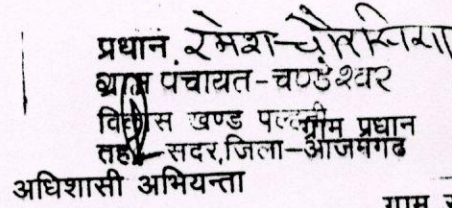 प्रधान रमेश चौरसिया
ग्राम पंचायत-चण्डेश्वर
विकास खण्ड पल्हनी ग्राम प्रधान
तह0-सदर,जिला-आजमगढ
अधिशासी अभियन्ता
ग्राम